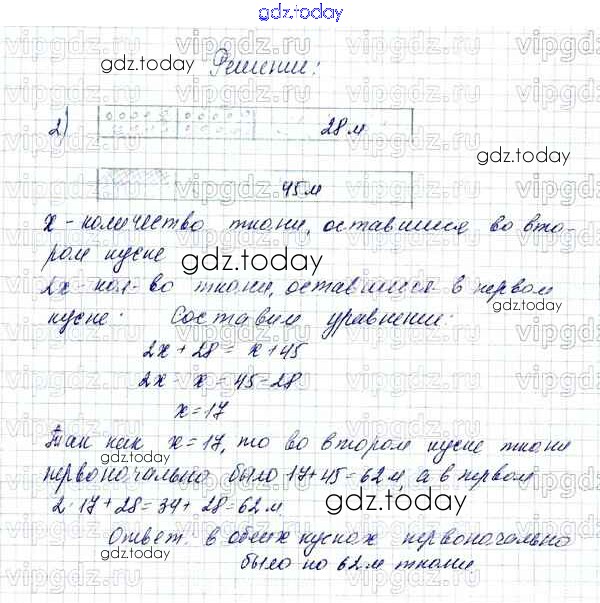 gdz.today
vipgdz.ru vipgdz.ru vipgdz.ru vipgdz
gdz.today
Решение:
2)
28 м
gdz.today
45 м
x - количество ткани, оставшиеся во вто-
ром куске
gdz.today
2x - кол-во ткани, оставшиеся в первом
куске. Составим уравнение:
2x + 28 = x + 45
gdz.today
2x - x = 45 - 28
x = 17
Так как x = 17, то во втором куске ткани
первоначально было 17 + 45 = 62 м, а в первом
2 · 17 + 28 = 34 + 28 = 62 м
gdz.today
Ответ: в обеих кусках первоначально
gdz.today
было по 62 м ткани